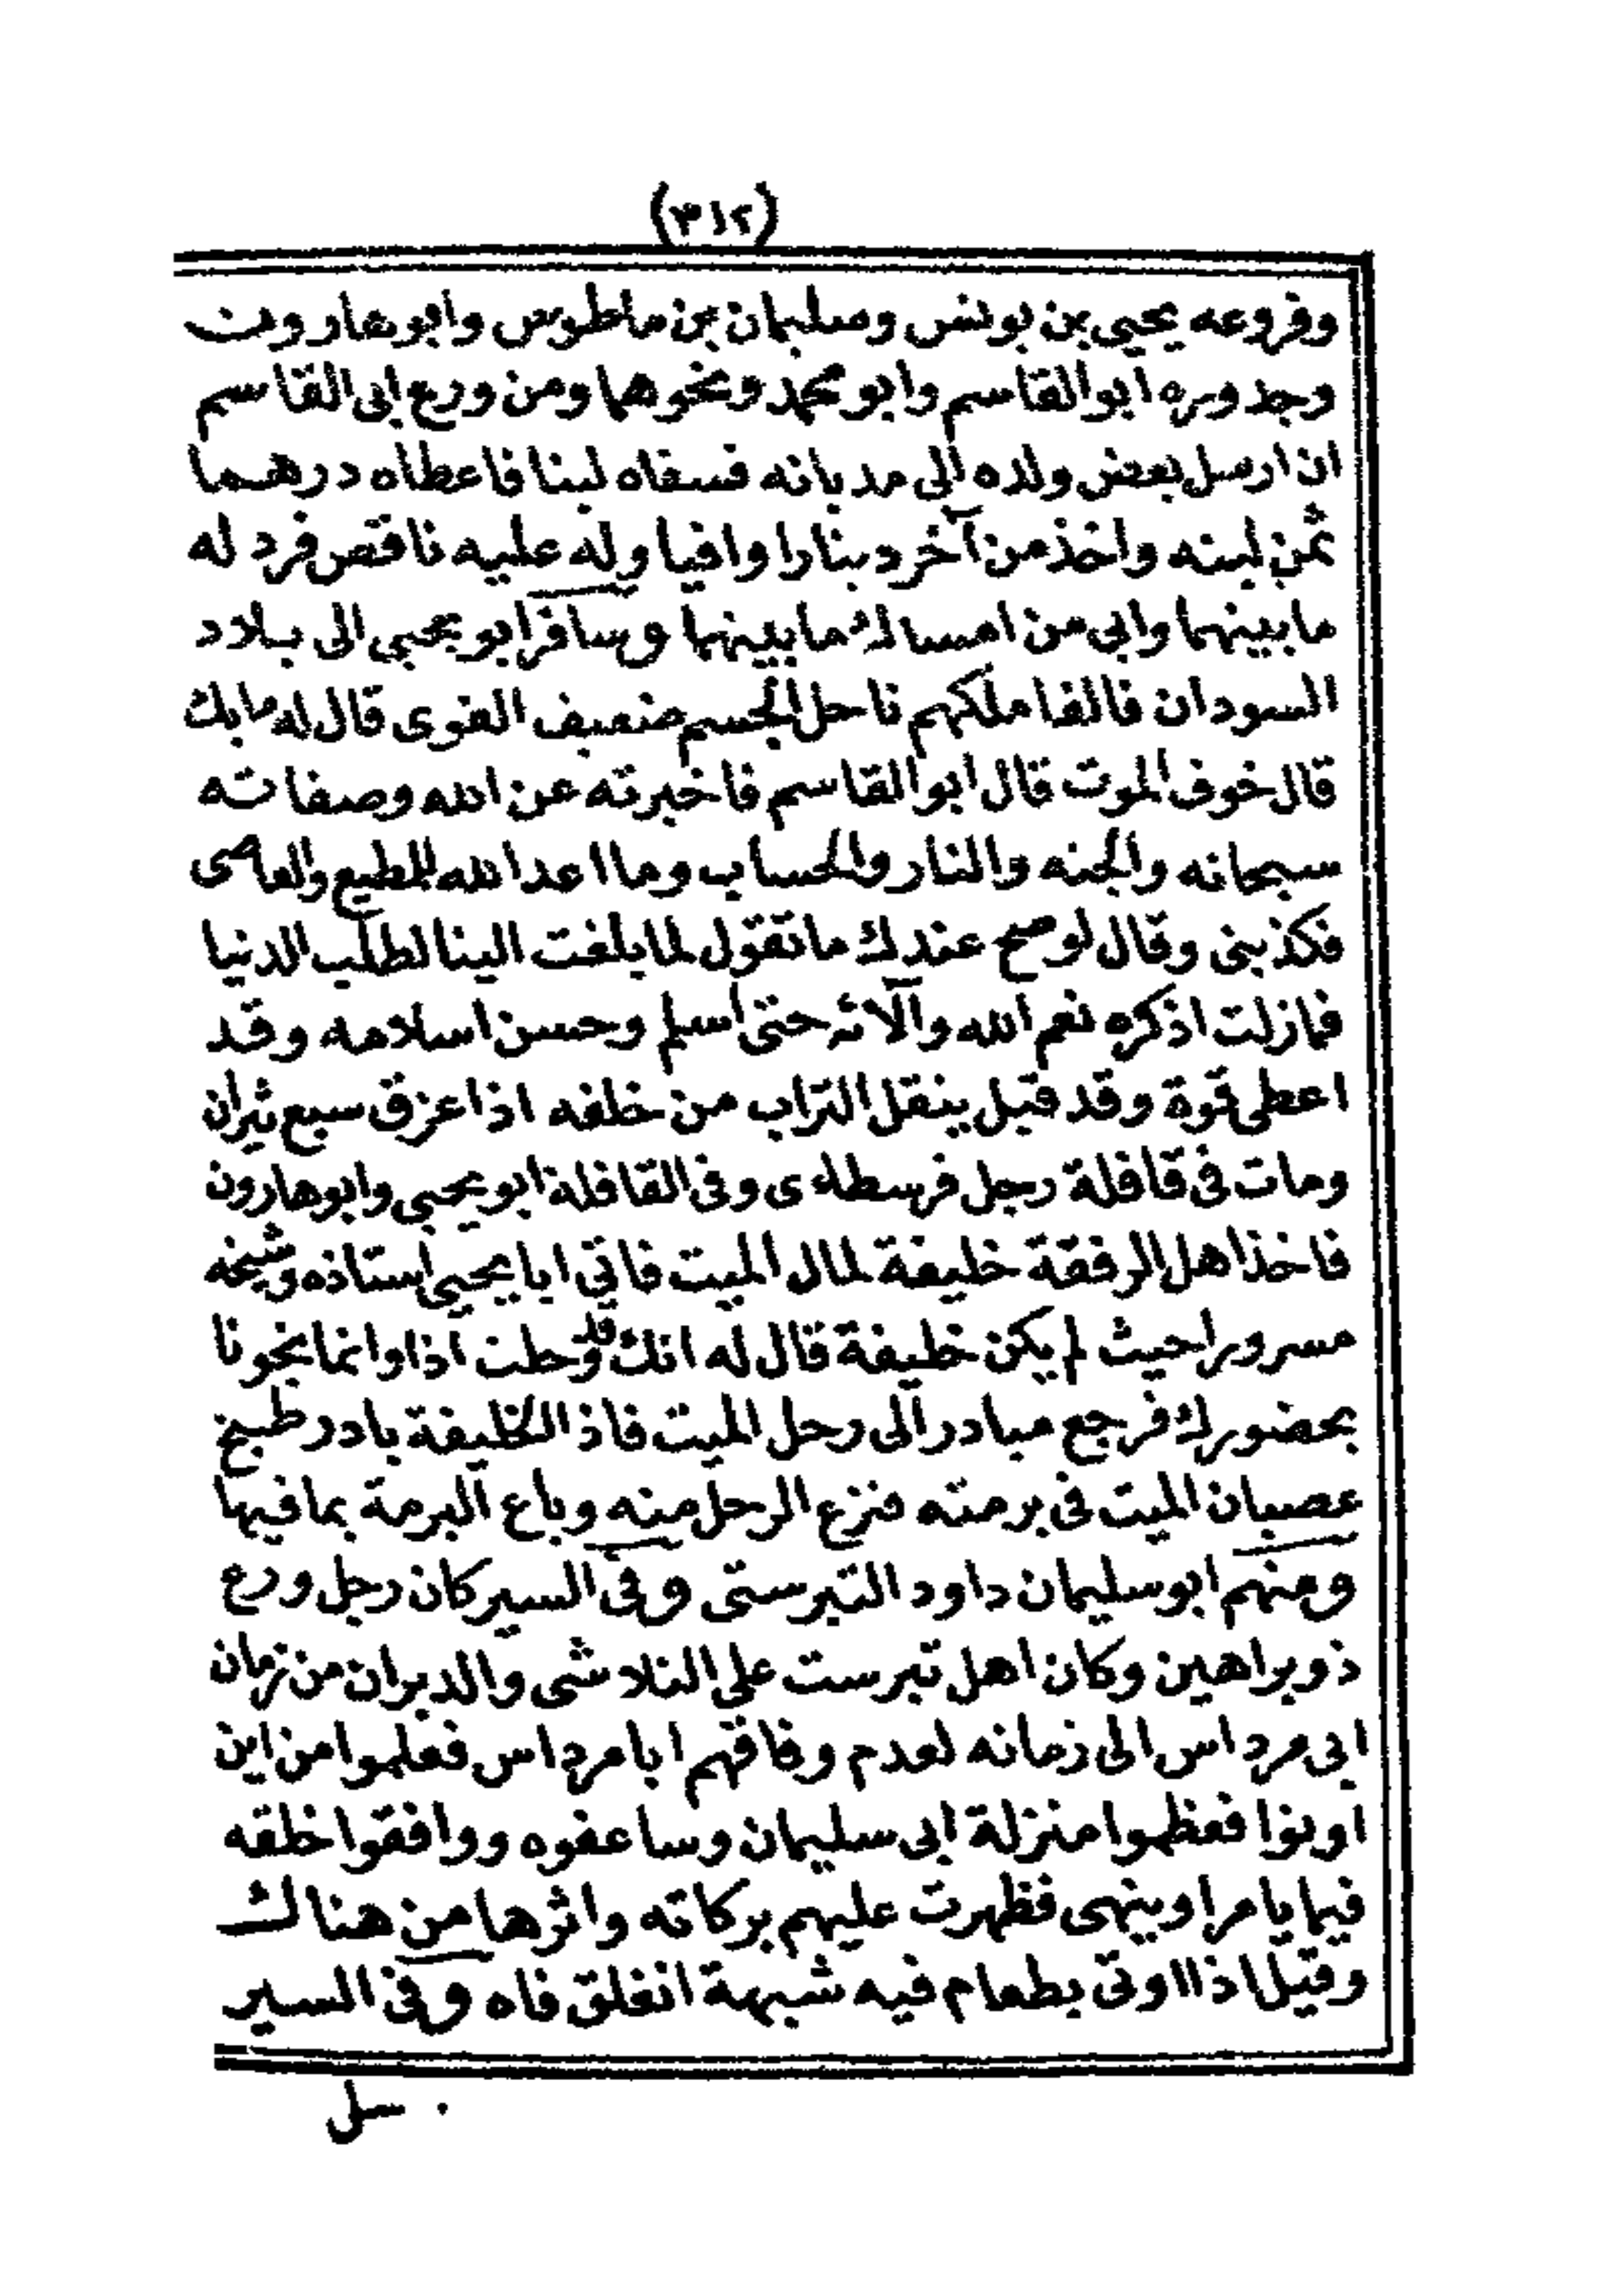 (٣١٢)
وفروعه يحيى بن يونس وسليمان بن ماطوس وابو هارون
وجذوره ابو القاسم وابو محمد ونحوهما ومن ورع ابى القاسم
ان ارسل بعض ولده الى مديانه فسقاه لبنا فاعطاه درهما
ثمن لبنه واخذ من آخر دينارا وافيا وله عليه ناقص فرد له
ما بينهما وابى من امساك ما بينهما وسافر ابو يحيى الى بلاد
السودان فالفا ملكهم ناحل الجسم ضعيف القوى قال له ما بك
قال خوف الموت قال ابو القاسم فاخبرته عن الله وصفاته
سبحانه والجنه والنار والحساب وما اعد الله للمطيع والعاصى
فكذبنى وقال لو صح عندك ما تقول لما بلغت الينا لطلب الدنيا
فما زلت اذكره نعم الله وآلائه حتى اسلم وحسن اسلامه وقد
اعطى قوة وقد قيل ينقل التراب من خلفه اذا عزق سبع ثيران
ومات فى قافلة رجل فرسطاءى وفى القافلة ابو يحيى وابو هارون
فاخذ اهل الرفقة خليفة لمال الميت فاتى ابا يحيى استاذه وشيخه
مسرورا حيث لم يكن خليفة قال له انك قد وحطت اذا وانما يخونا
بحضورك فرجع مبادرا الى رحل الميت فاذ الخليفة بادر طبخ
عصبان الميت فى برمته فنزع الرحل منه وباع البرمة بما فيها
ومنهم ابو سليمان داود التبرستى وفى السير كان رجل ورع
ذو براهين وكان اهل تبرست على التلاشى والدبران من زمان
ابى مرداس الى زمانه لعدم وفاقهم ابا مرداس فعلموا من اين
اوتوا فعظموا منزلة ابى سليمان وساعفوه ووافقوا خلقه
فيما يامر اوينهى فظهرت عليهم بركاته واثرها من هناك
وقيل اذا اوتى بطعام فيه شبهة انغلق فاه وفى السير
سل